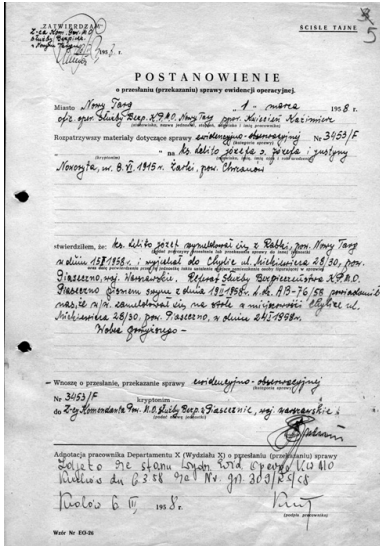 ZATWIERDZAM
Z-ca Kom. Pow. M.O.
Służby Bezp.
w Nowym Targu
ŚCIŚLE TAJNE
5
POSTANOWIENIE
o przesłaniu (przekazaniu) sprawy ewidencji operacyjnej.
Miasto Nowy Targ „1” marca 1958 r.
ofic. oper. Służby Bezp. K.P.M.O. Nowy Targ ppor. Kwiecień Kazimierz
Rozpatrzywszy materiały dotyczące sprawy ewidencyjno-obserwacyjnej Nr 3453/F
(kategoria sprawy)
„ ” na ks. Lelito Józefa s. Józefa i Justyny
(kryptonim)
ur. 8. VI. 1915 r. Żarki, pow. Chrzanów
stwierdziłem, że: ks. Lelito Józef wymeldował się z Rabki, pow. Nowy Targ
w dniu 1958 r. i wyjechał do Chylic ul. Mickiewicza 28/30, pow.
Piaseczno, woj. Warszawskie. Referat Służby Bezpieczeństwa K.P.M.O.
Piaseczno pismem swym z dnia 1958 r. L.dz. AB-76/58 powiadomił
nas, że w/w. zameldował się na stałe w miejscowości Chylice ul.
Mickiewicza 28/30, pow. Piaseczno, w dniu 24 I 1958 r.
Wobec powyższego –
Wnoszę o przesłanie, przekazanie sprawy ewidencyjno-obserwacyjnej
(kategoria sprawy)
Nr 3453/F kryptonim
do Z-cy Komendanta Pow. M.O. Służby Bezp. w Piasecznie, woj. warszawskie
Adnotacja pracownika Departamentu X (Wydziału X) o przesłaniu (przekazaniu) sprawy
Zdjęto ze stanu Wydz. Ewid. Oper. KWMO
Kraków dn. 6.3.58 za Nr.
Kraków 6. III. 1958 r.
(podpis pracownika)
Wzór Nr EO-26